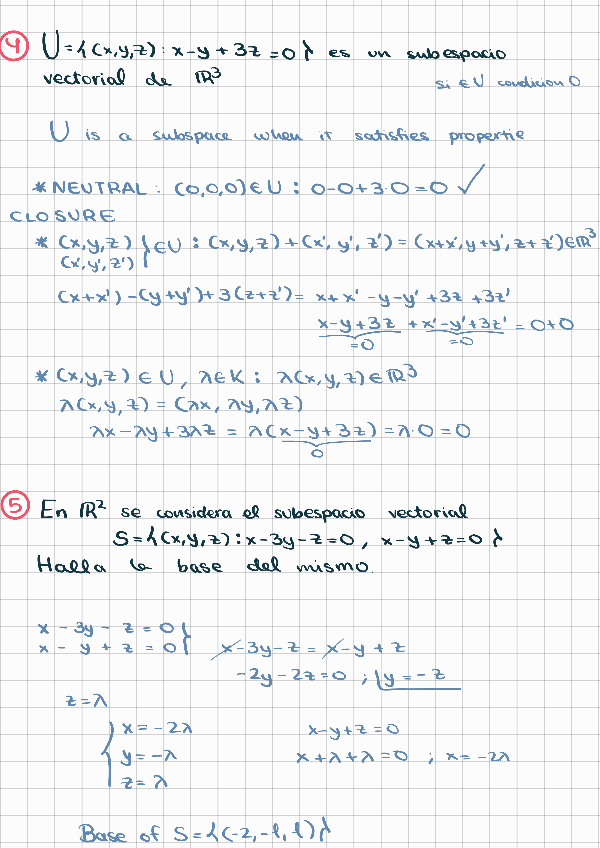 4 U={(x,y,z): x-y+3z=0} es un subespacio
vectorial de ℝ³
si ∈U condicion 0
U is a subspace when it satisfies propertie
* NEUTRAL: (0,0,0)∈U: 0-0+3·0=0 ✓
CLOSURE
* (x,y,z) } ∈U: (x,y,z)+(x',y',z')=(x+x',y+y',z+z')∈ℝ³
(x',y',z')
(x+x')-(y+y')+3(z+z')= x+x'-y-y'+3z+3z'
x-y+3z+x'-y'+3z'=0+0
=0 =0
* (x,y,z)∈U, λ∈K: λ(x,y,z)∈ℝ³
λ(x,y,z)=(λx, λy, λz)
λx-λy+3λz = λ(x-y+3z)=λ·0=0
0
5 En ℝ² se considera el subespacio vectorial
S={(x,y,z): x-3y-z=0, x-y+z=0}
Halla la base del mismo.
x - 3y - z = 0 }
x - y + z = 0
x-3y-z = x-y+z
-2y-2z=0 ; y=-z
z=λ
{ x=-2λ
y=-λ
z=λ
x-y+z=0
x+λ+λ=0 ; x=-2λ
Base of S={(-2,-1,1)}